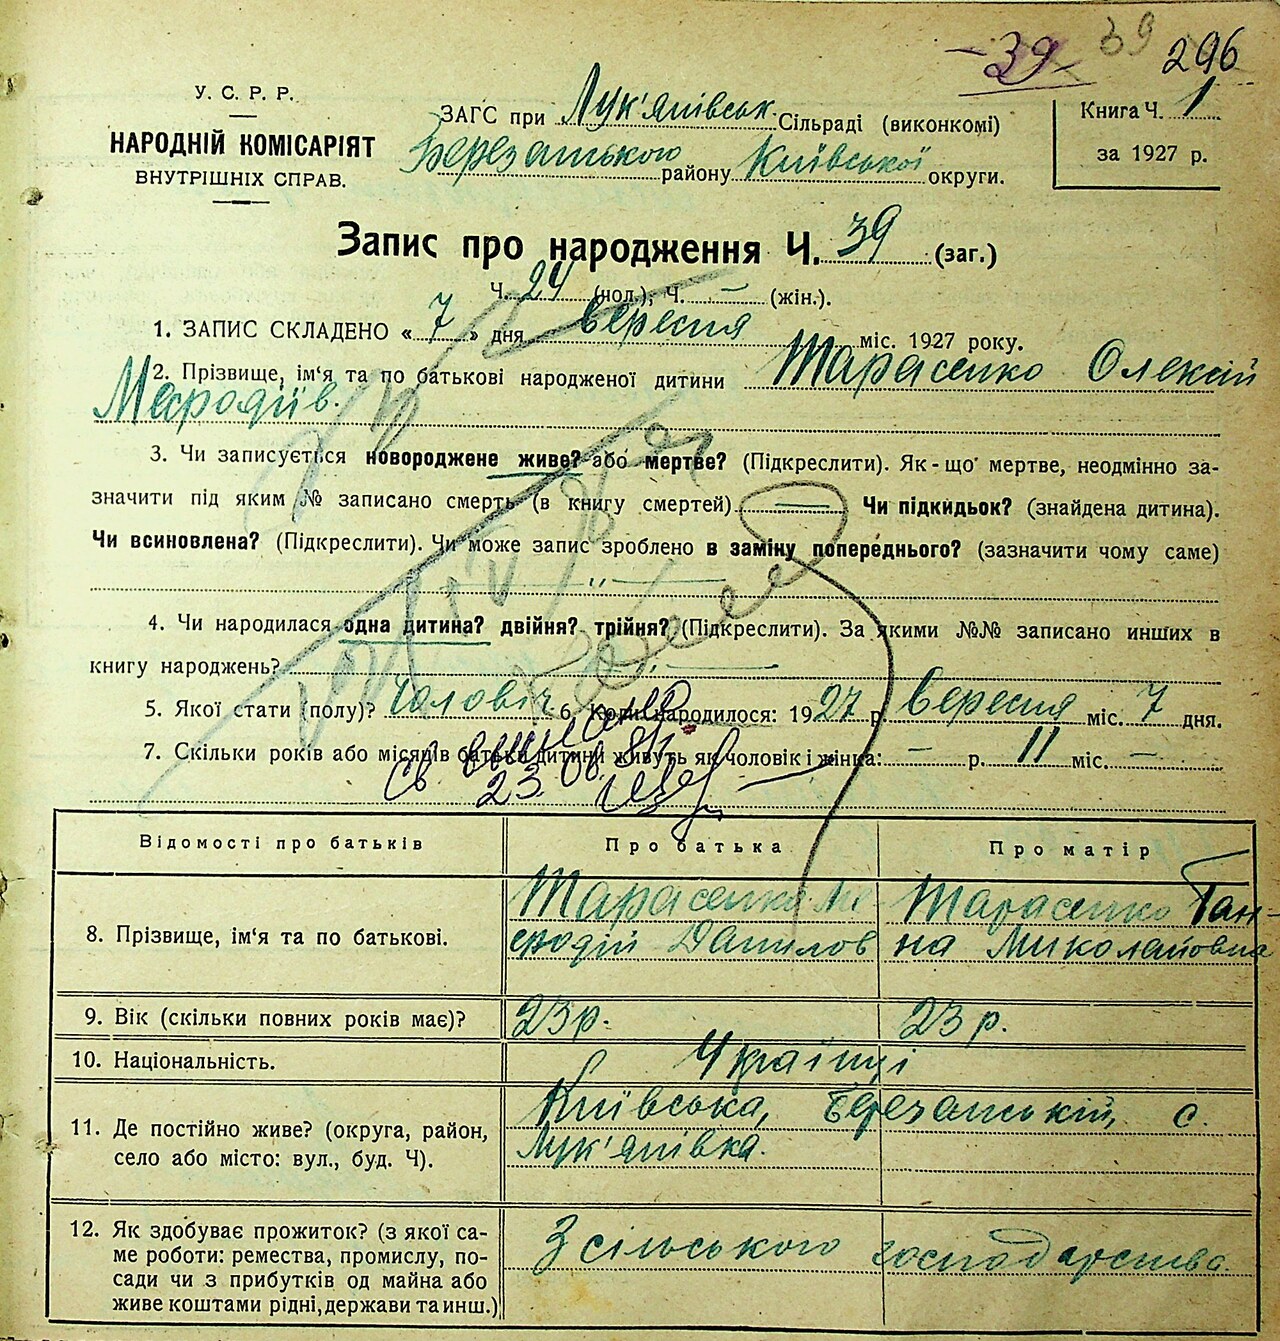 -39- 39 296
У. С. Р. Р.
НАРОДНІЙ КОМІСАРІЯТ
ВНУТРІШНІХ СПРАВ.
ЗАГС при Лук'янівськ. Сільраді (виконкомі)
Березанського району Київської округи.
Книга Ч. 1
за 1927 р.
Запис про народження Ч. 39 (заг.)
Ч. 24 (чол.), Ч. – (жін.).
1. ЗАПИС СКЛАДЕНО « 7 » дня вересня міс. 1927 року.
2. Прізвище, ім'я та по батькові народженої дитини Тарасенко Олексій
Мефодіїв.
3. Чи записується новороджене живе? або мертве? (Підкреслити). Як-що мертве, неодмінно за-
значити під яким № записано смерть (в книгу смертей) — Чи підкидьок? (знайдена дитина).
Чи всиновлена? (Підкреслити). Чи може запис зроблено в заміну попереднього? (зазначити чому саме)
— „ —
4. Чи народилася одна дитина? двійня? трійня? (Підкреслити). За якими №№ записано инших в
книгу народжень? — „ —
5. Якої стати (полу)? Чоловіч 6. Коли народилося: 1927 р. Вересня міс. 7 дня.
7. Скільки років або місяців батьки дитини живуть як чоловік і жінка: – р. 11 міс. –
Св.
23.06.
Відомості про батьків
Про батька
Про матір
8. Прізвище, ім'я та по батькові.
Тарасенко Ме-
фодій Данилов
Тарасенко Ган-
на Миколаївна
9. Вік (скільки повних років має)?
23 р.
23 р.
10. Національність.
Українці
11. Де постійно живе? (округа, район,
село або місто: вул., буд. Ч).
Київська, Березанській, с.
Лук'янівка.
12. Як здобуває прожиток? (з якої са-
ме роботи: ремества, промислу, по-
сади чи з прибутків од майна або
живе коштами рідні, держави та инш.)
З сільського господарства.